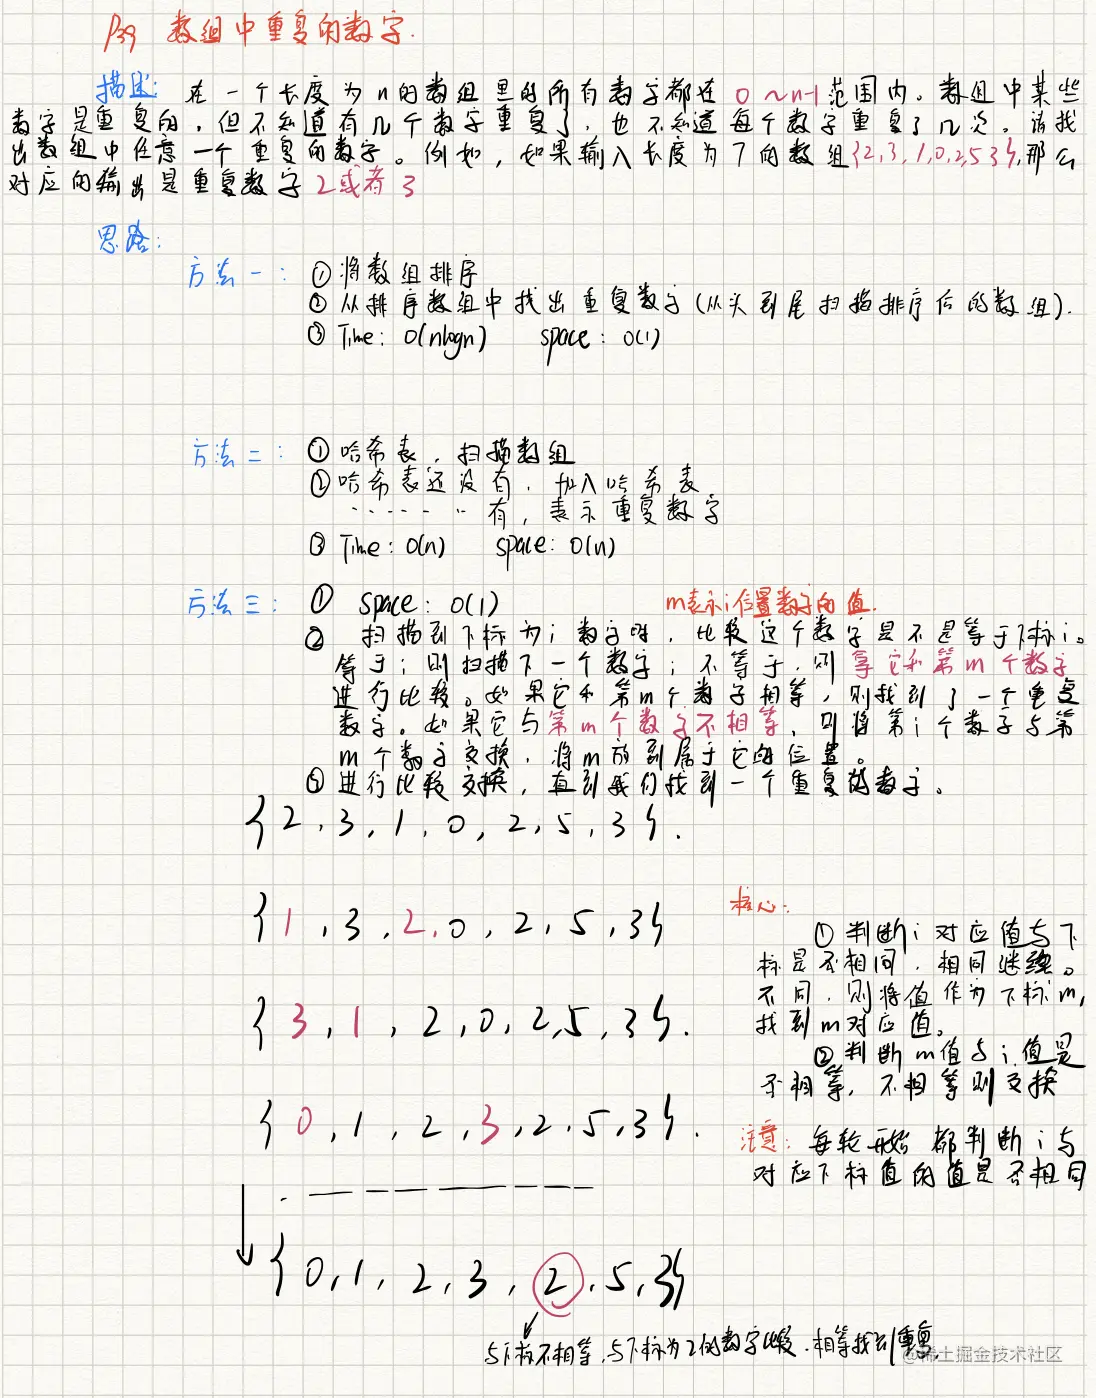 P39 数组中重复的数字.
描述: 在一个长度为n的数组里的所有数字都在0~n-1范围内。数组中某些
数字是重复的，但不知道有几个数字重复了，也不知道每个数字重复了几次。请找
出数组中任意一个重复的数字。例如，如果输入长度为7的数组{2,3,1,0,2,5,3},那么
对应的输出是重复数字2或者3
思路:
方法一: ①将数组排序
②从排序数组中找出重复数字(从头到尾扫描排序后的数组).
③ Time: O(nlogn) space: O(1)
方法二: ①哈希表，扫描数组
②哈希表还没有，加入哈希表
······有，表示重复数字
③ Time: O(n) space: O(n)
方法三: ① space: O(1) m表示i位置数字的值.
② 扫描到下标为i数字时，比较这个数字是不是等于下标i。
等于i则扫描下一个数字；不等于，则拿它和第m个数字
进行比较。如果它和第m个数字相等，则找到了一个重复
数字。如果它与第m个数字不相等，则将第i个数字与第
m个数字交换，将m放到属于它的位置。
③进行比较交换，直到我们找到一个重复的数字。
{2,3,1,0,2,5,3}.
{1,3,2,0,2,5,3}
{3,1,2,0,2,5,3}.
{0,1,2,3,2,5,3}.
{0,1,2,3,2,5,3}
与下标不相等,与下标为2的数字比较.相等找到重复
核心:
①判断i对应值与下
标是否相同，相同继续。
不同，则将值作为下标m,
找到m对应值。
②判断m值与i值是
否相等，不相等则交换
注意: 每轮开始都判断i与
对应下标值的值是否相同
@稀土掘金技术社区